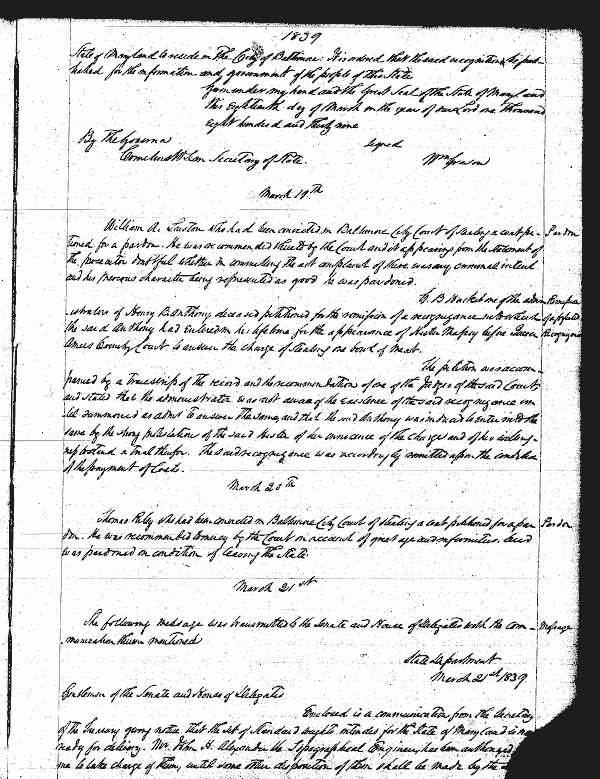 1839
State of Maryland to reside in The City of Baltimore. It is ordered that the said recognition be pub-
lished for the information and government of the people of this State
Given under my hand and the Great Seal of the State of Maryland
this Eighteenth day of March in the year of our Lord one Thousand
Eight hundred and thirty nine
By The Governor
signed
Secretary of State.
Wm Grason
March 19th
William A. who had been convicted in Baltimore City Court of stealing a coat pe-
titioned for a pardon. He was recommended thereto by the Court and it appearing from the statement of
the prosecutor doubtful whether in committing the act complained of there was any criminal intent
and his previous character being represented as good he was pardoned.
Pardon
one of the admin-
istrators of Henry B. Anthony deceased petitioned for the remission of a recognizance into which
the said Anthony had entered in his lifetime for the appearance of Hester before Queen
Anns County Court to answer the charge of stealing one bowl of meat.
Remission
of a forfeited
Recognizance
The petition was accom-
panied by a transcript of the record and the recommendation of one of the Judges of the said Court
and stated that the administrator was not aware of the existence of the said recognizance un-
til summoned as admr to answer the same, and that the said Anthony was induced to enter into the
same by the strong protestations of the said Hester of her innocence of the charge and of her willing-
ness to stand a trial therefor. The said recognizance was accordingly remitted upon the condition
of the payment of costs.
March 20th
Thomas who had been convicted in Baltimore City Court of stealing a coat petitioned for a par-
don. He was recommended to mercy by the Court on account of great age and infirmities and
was pardoned on condition of leaving the State.
Pardon
March 21st
The following message was transmitted to the Senate and House of Delegates with the com-
munication therein mentioned
Message
State Department
March 21st 1839
Gentlemen of the Senate and House of Delegates
Enclosed is a communication from the Secretary
of the Treasury giving notice that the set of Standard weights intended for the State of Maryland is now
ready for delivery. Mr. John H. Alexander the Topographical Engineer, has been authorized
to take charge of them, until some other disposition of them shall be made by the